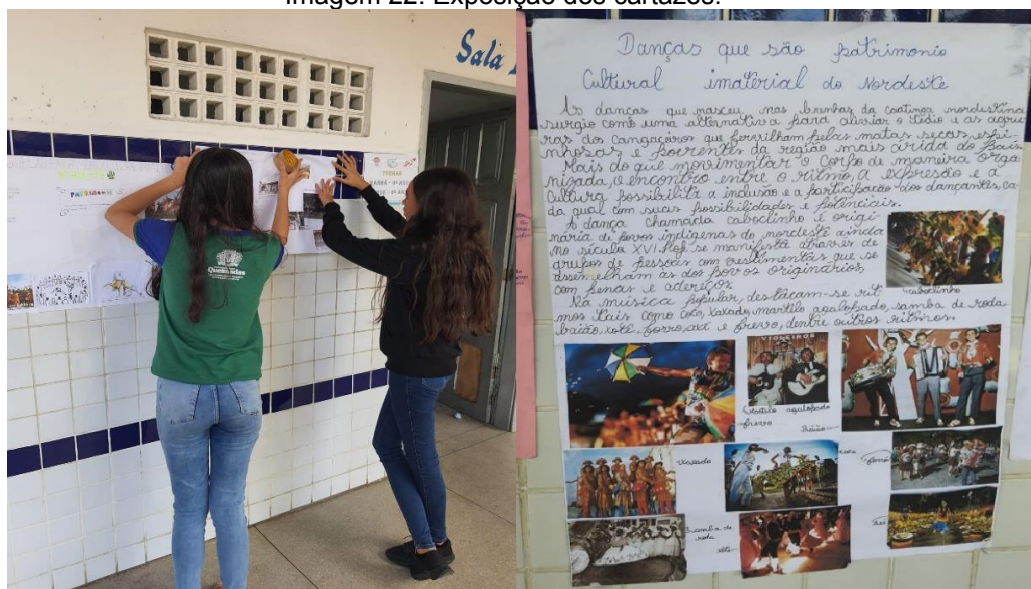 Imagem 22: Exposição dos cartazes.
Sala
PATRIMONIO
TURMA
Queimadas
Danças que são patrimonio
Cultural imaterial do Nordeste
As danças que nasceu nas brenhas da caatinga nordestina
surgio como uma alternativa para aliviar o tédio e as agru
ras dos Cangaceiros que fervilham pelas matas secas, espi-
nhosas e torrentes da região mais árida do país.
Mais do que movimentar o corpo de maneira orga
nizada, o encontro entre o ritmo, a expressão e a
cultura possibilita a inclusão e a participação dos dançantes, ca
da qual com suas possibilidades e potenciais.
A dança chamada caboclinho é origi
nária di povos indígenas do nordeste ainda
no século XVI. Hoje se manifesta através de
grupos de pessoas com vestimentas que se
assemelham as dos povos originários,
com penas e adereços.
Na música popular, destacam-se rit
mos tais como coco, xaxado, martelo agalopado, samba de roda
baião, xote, forro, axé e frevo, dentre outros ritmos.
caboclinho
VIOLEIROS
Martelo agalopado
frevo
Baião
xaxado
coco
forró
Samba de
roda
xote
Axé